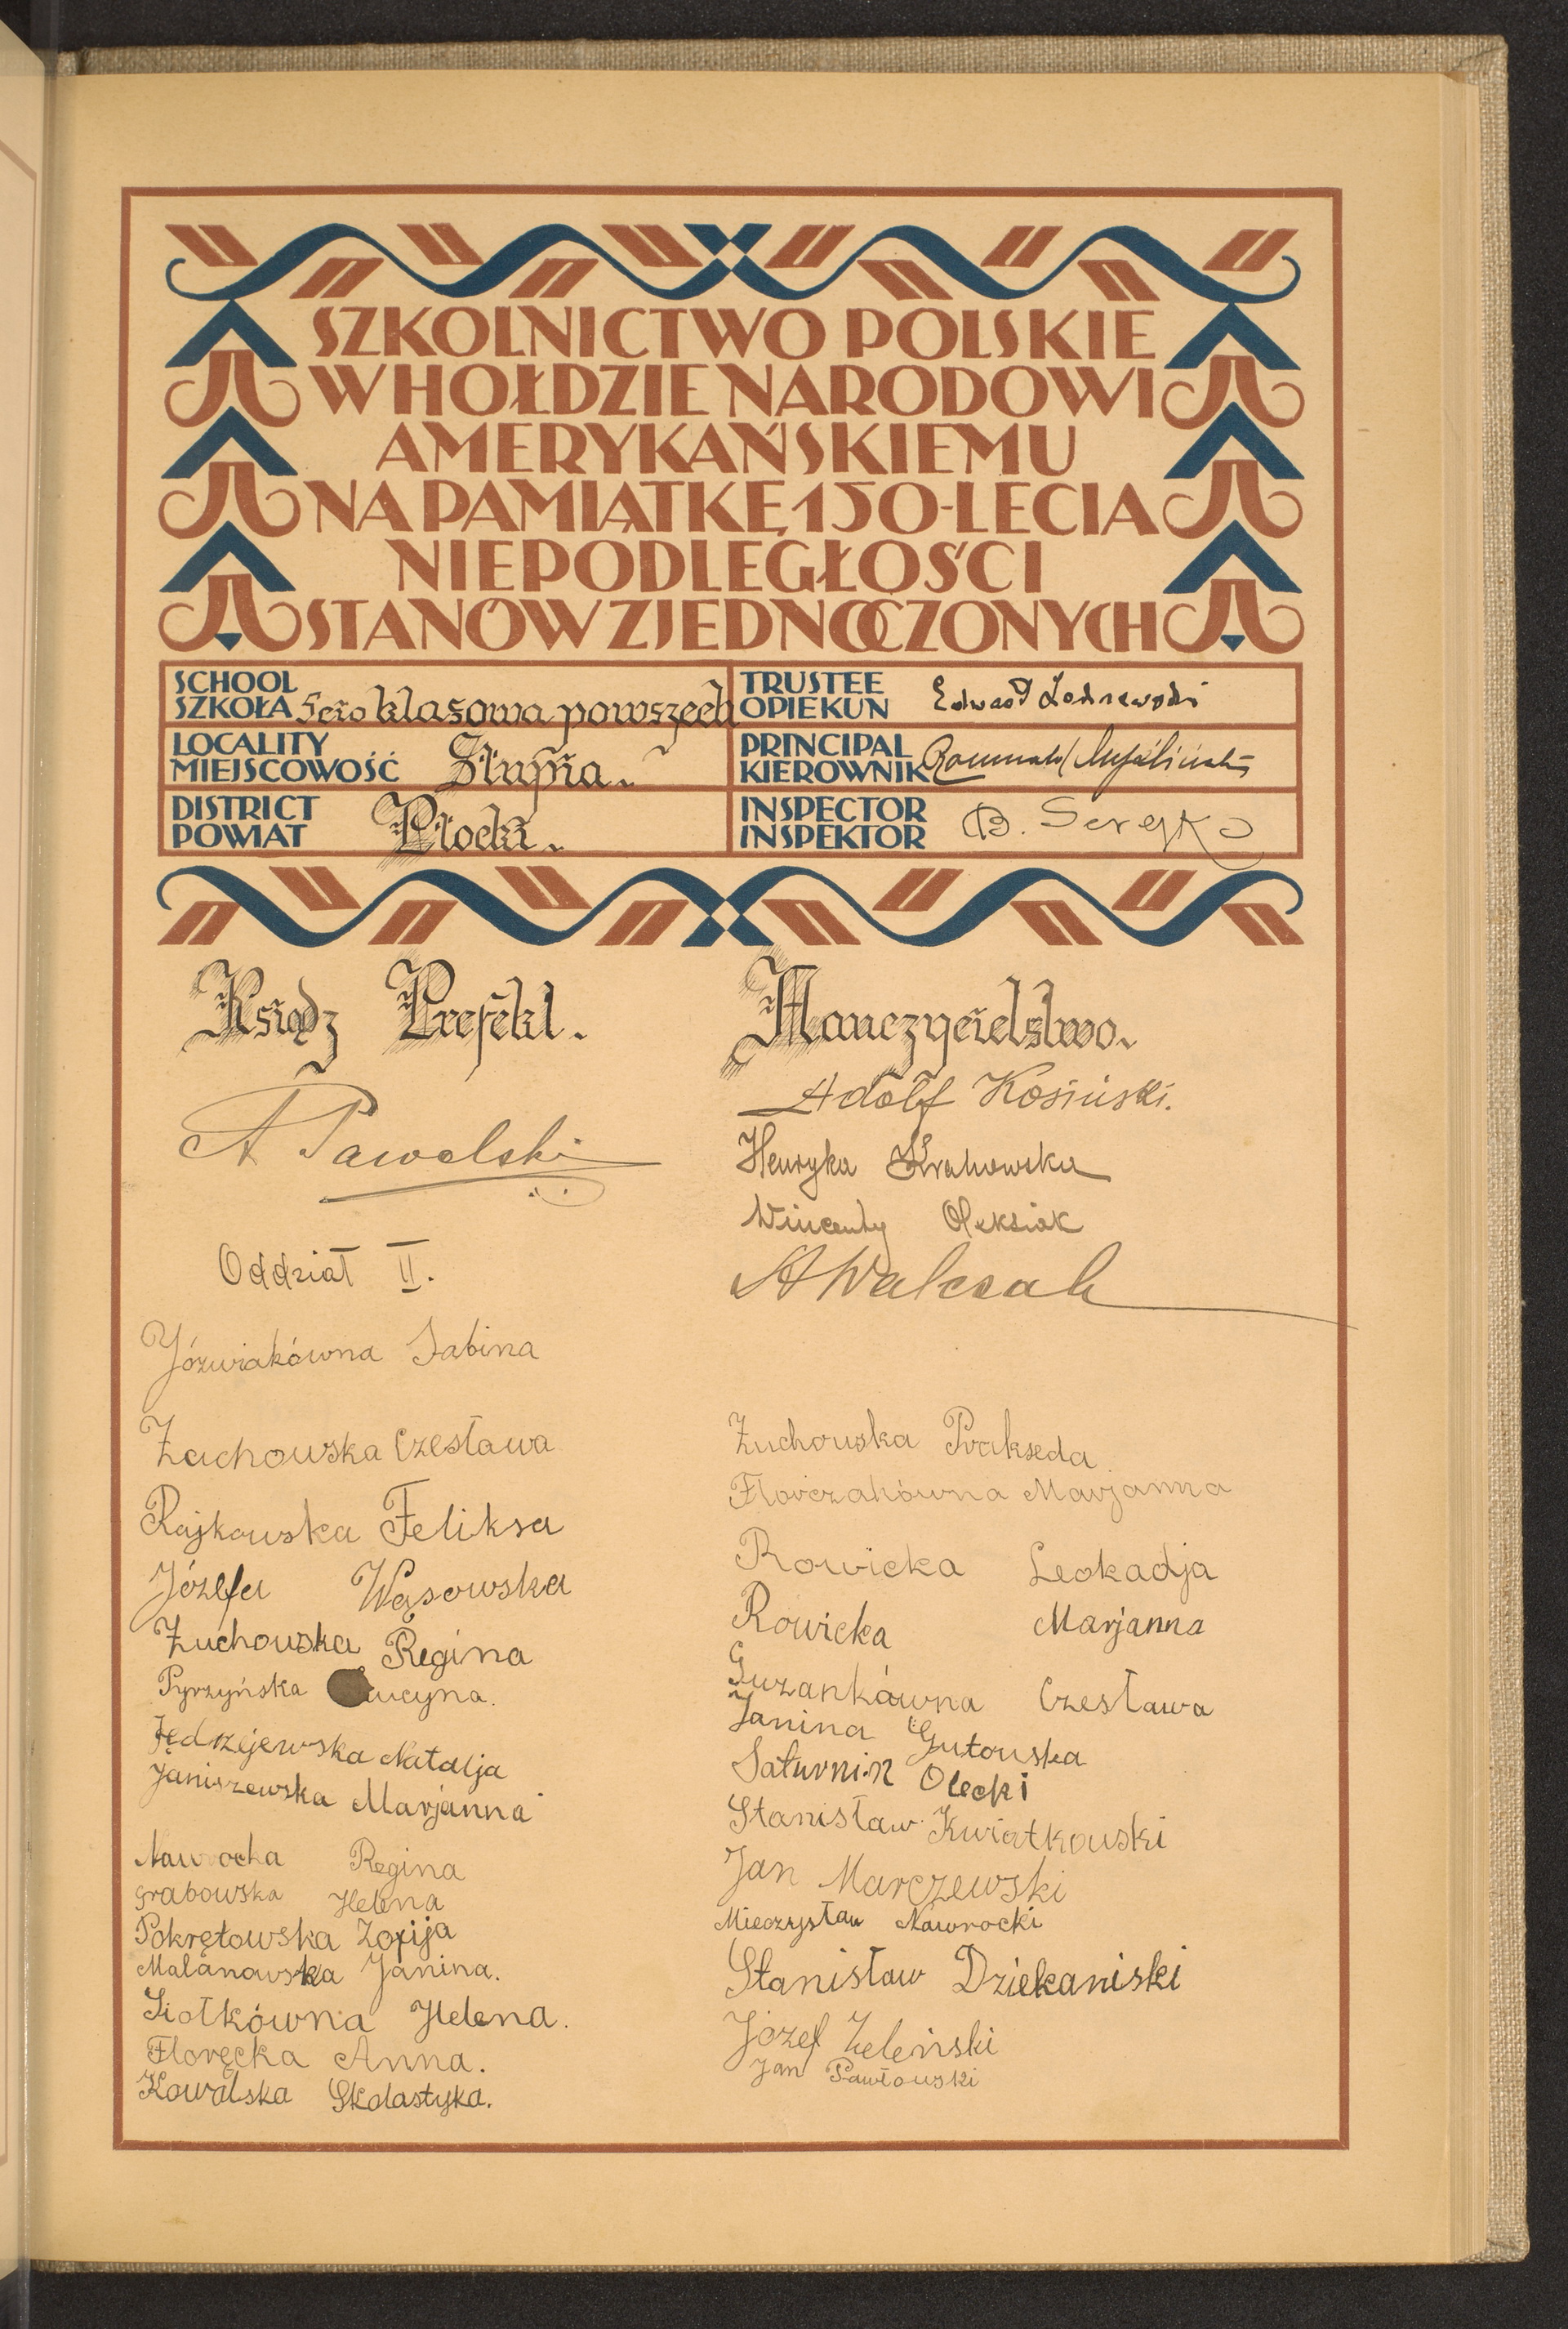 SZKOLNICTWO POLSKIE
W HOŁDZIE NARODOWI
AMERYKAŃSKIEMU
NA PAMIĄTKĘ 150-LECIA
NIEPODLEGŁOŚCI
STANÓW ZJEDNOCZONYCH
SCHOOL
SZKOŁA 5cio klasowa powszech
TRUSTEE
OPIEKUN Edward
LOCALITY
MIEJSCOWOŚĆ Słupia.
PRINCIPAL
KIEROWNIK Romuald
DISTRICT
POWIAT Płocki.
INSPECTOR
INSPEKTOR B.
Ksiądz Prefekt.
A Pawelski
Nauczycielstwo.
Adolf Kosiński.
Henryka Krakowska
Wincenty Oleksiak
A Walczak
Oddział II.
Józwiakówna Sabina
Żuchowska Czesława
Rajkowska Feliksa
Józefa Wąsowska
Żuchowska Regina
Pyrzyńska Lucyna.
Jędrzejewska Natalja
Janiszewska Marjanna
Nawrocka Regina
Grabowska Helena
Pokrętowska Zofija
Malanowska Janina.
Siotkówna Helena.
Florecka Anna.
Kowalska Skolastyka.
Żuchowska Prakseda
Florczakówna Marjanna
Rowicka Leokadja
Rowicka Marjanna
Guzankówna Czesława
Janina Gutowska
Saturnin Olecki
Stanisław Kwiatkowski
Jan Marczewski
Mieczysław Nawrocki
Stanisław Dziekaniski
Józef Zeleński
Jan Pawłowski